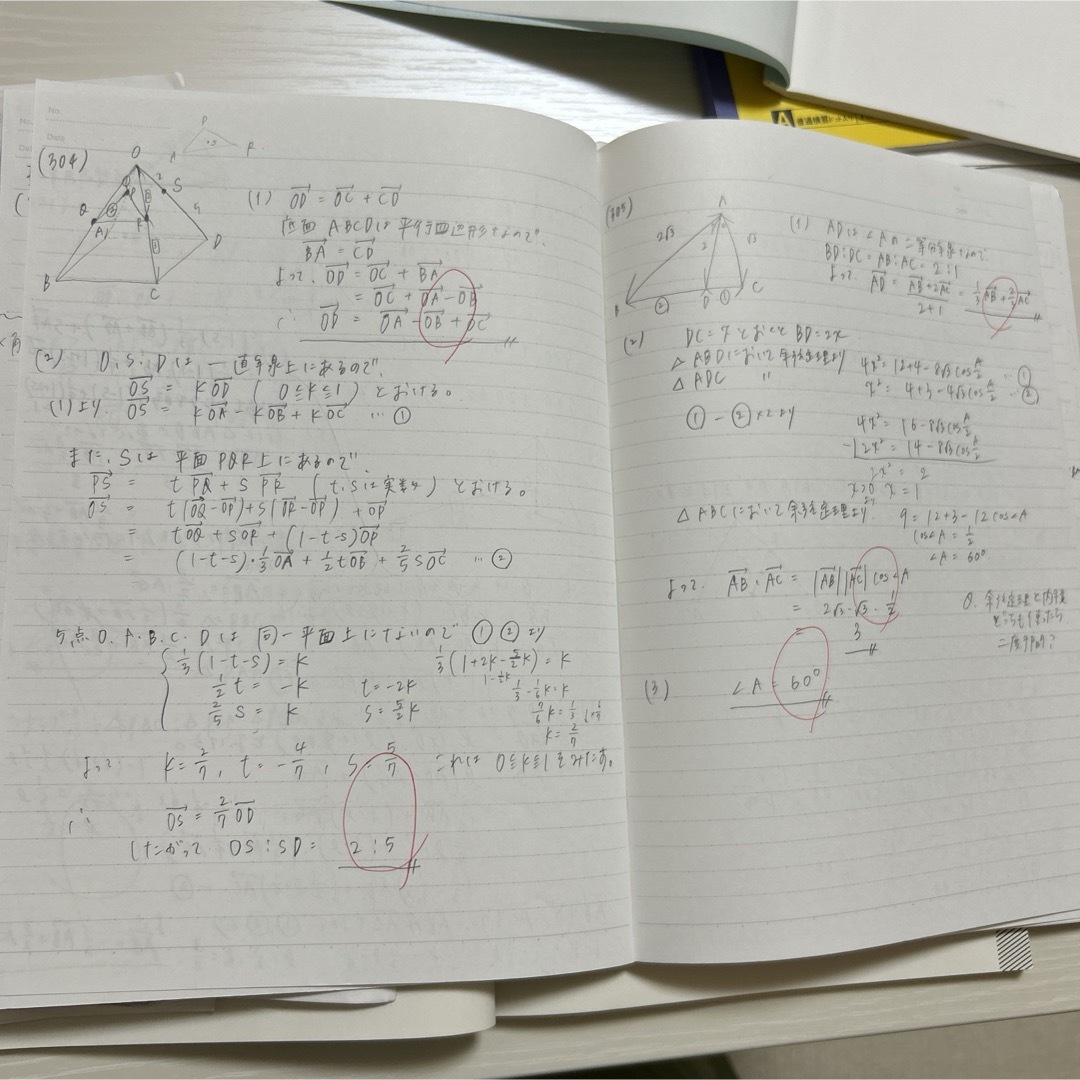 No.
Date
(304)
(1) OD = OC + CD
底面 ABCDは 平行四辺形なので、
BA = CD
よって、OD = OC + BA
= OC + OA - OB
∴ OD = OA - OB + OC
(2) O, S, Dは 一直線上にあるので、
OS = kOD ( 0≦k≦1 ) とおける。
(1)より OS = kOA - kOB + kOC … ①
また、Sは 平面PQR上にあるので、
PS = tPQ + sPR (t,sは実数) とおける。
OS = t(OQ-OP)+s(OR-OP)+OP
= tOQ + sOR + (1-t-s)OP
= (1-t-s)・1/3 OA + 1/2 tOB + 2/5 sOC … ②
5点 O, A, B, C, D は 同一平面上にないので ①②より
1/3(1-t-s) = k
1/2 t = -k t = -2k
2/5 s = k s = 5/2 k
1/3(1+2k-5/2k) = k
1-1/2k
1/3 - 1/6k = k
7/6 k = 1/3
k = 2/7
よって k = 2/7, t = -4/7, s = 5/7 これは 0≦k≦1をみたす。
∴ OS = 2/7 OD
したがって OS : SD = 2 : 5
(305)
(1) ADは∠Aの二等分線なので
BD:DC = AB:AC = 2:1
よって AD = (AB+2AC)/(2+1) = 1/3 AB + 2/3 AC
(2) DC = x とおくと BD = 2x
△ABDにおいて 余弦定理より 4x² = 12+4-8√3cos A/2 … ①
△ADC 〃 x² = 4+3-4√3cos A/2 … ②
①-②×2より
4x² = 16-8√3cos A/2
-) 2x² = 14-8√3cos A/2
2x² = 2
x>0より x = 1
△ABCにおいて余弦定理より 9 = 12+3-12cosA
cos∠A = 1/2
∠A = 60°
よって、AB・AC = |AB||AC|cos∠A
= 2√3・√3・1/2
= 3
Q. 余弦定理と内積
どっちも使ったら
二度手間?
(3) ∠A = 60°